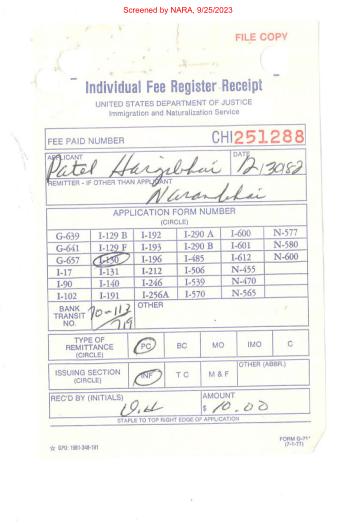 Screened by NARA, 9/25/2023
FILE COPY
Individual Fee Register Receipt
UNITED STATES DEPARTMENT OF JUSTICE
Immigration and Naturalization Service
FEE PAID NUMBER CHI251288
APPLICANT DATE
Patel Harjibhai 12/30/82
REMITTER - IF OTHER THAN APPLICANT
Naranbhai
APPLICATION FORM NUMBER
(CIRCLE)
G-639 I-129 B I-192 I-290 A I-600 N-577
G-641 I-129 F I-193 I-290 B I-601 N-580
G-657 I-130 I-196 I-485 I-612 N-600
I-17 I-131 I-212 I-506 N-455
I-90 I-140 I-246 I-539 N-470
I-102 I-191 I-256A I-570 N-565
BANK TRANSIT NO. 70-113/719 OTHER
TYPE OF REMITTANCE (CIRCLE) PC BC MO IMO C
ISSUING SECTION (CIRCLE) INF T C M & F OTHER (ABBR.)
REC'D BY (INITIALS) AMOUNT
$ 10.00
STAPLE TO TOP RIGHT EDGE OF APPLICATION
☆ GPO: 1981-348-191
FORM G-71
(7-1-77)